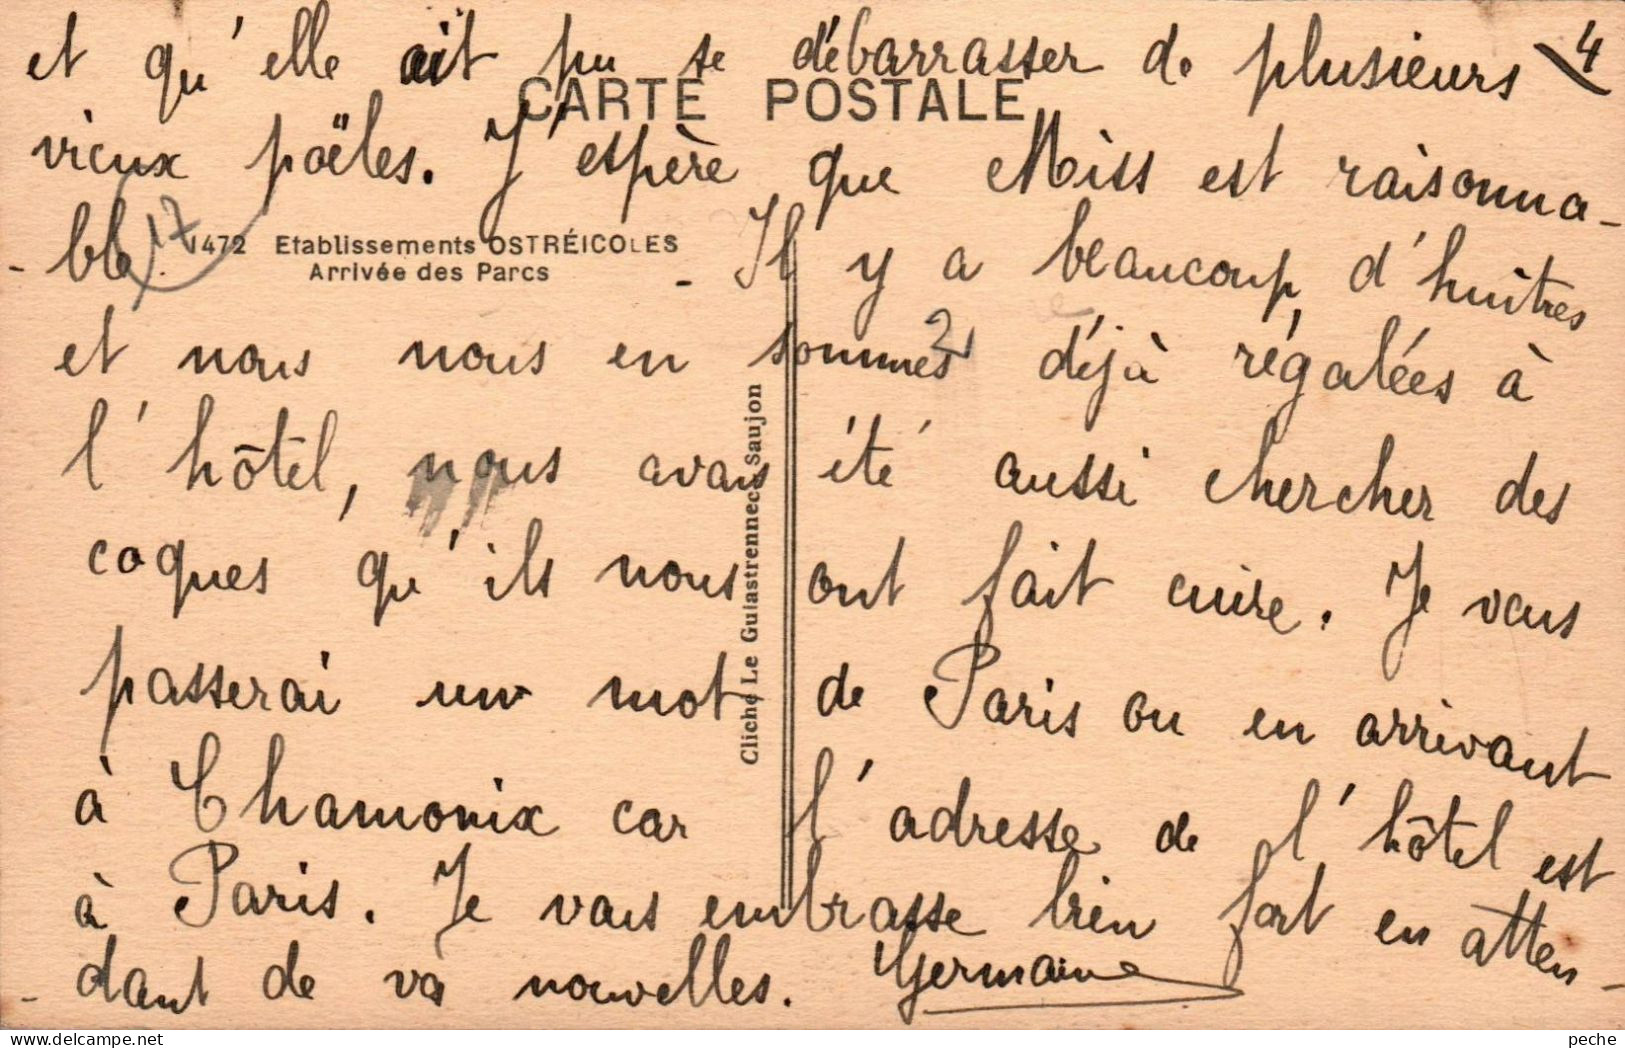 4
et qu'elle ait pu se débarrasser de plusieurs
CARTE POSTALE
vieux poëles. J'espère que Miss est raisonna-
- ble. - Il y a beaucoup d'huîtres
17
1472 Etablissements OSTRÉICOLES
Arrivée des Parcs
et nous nous en sommes déjà régalées à
2
l'hôtel, nous avons été aussi chercher des
coques qu'ils nous ont fait cuire. Je vous
passerai un mot de Paris ou en arrivant
à Chamonix car l'adresse de l'hôtel est
à Paris. Je vous embrasse bien fort en atten-
- dant de vos nouvelles. Germaine
Cliché Le Guiastrennec, Saujon
peche